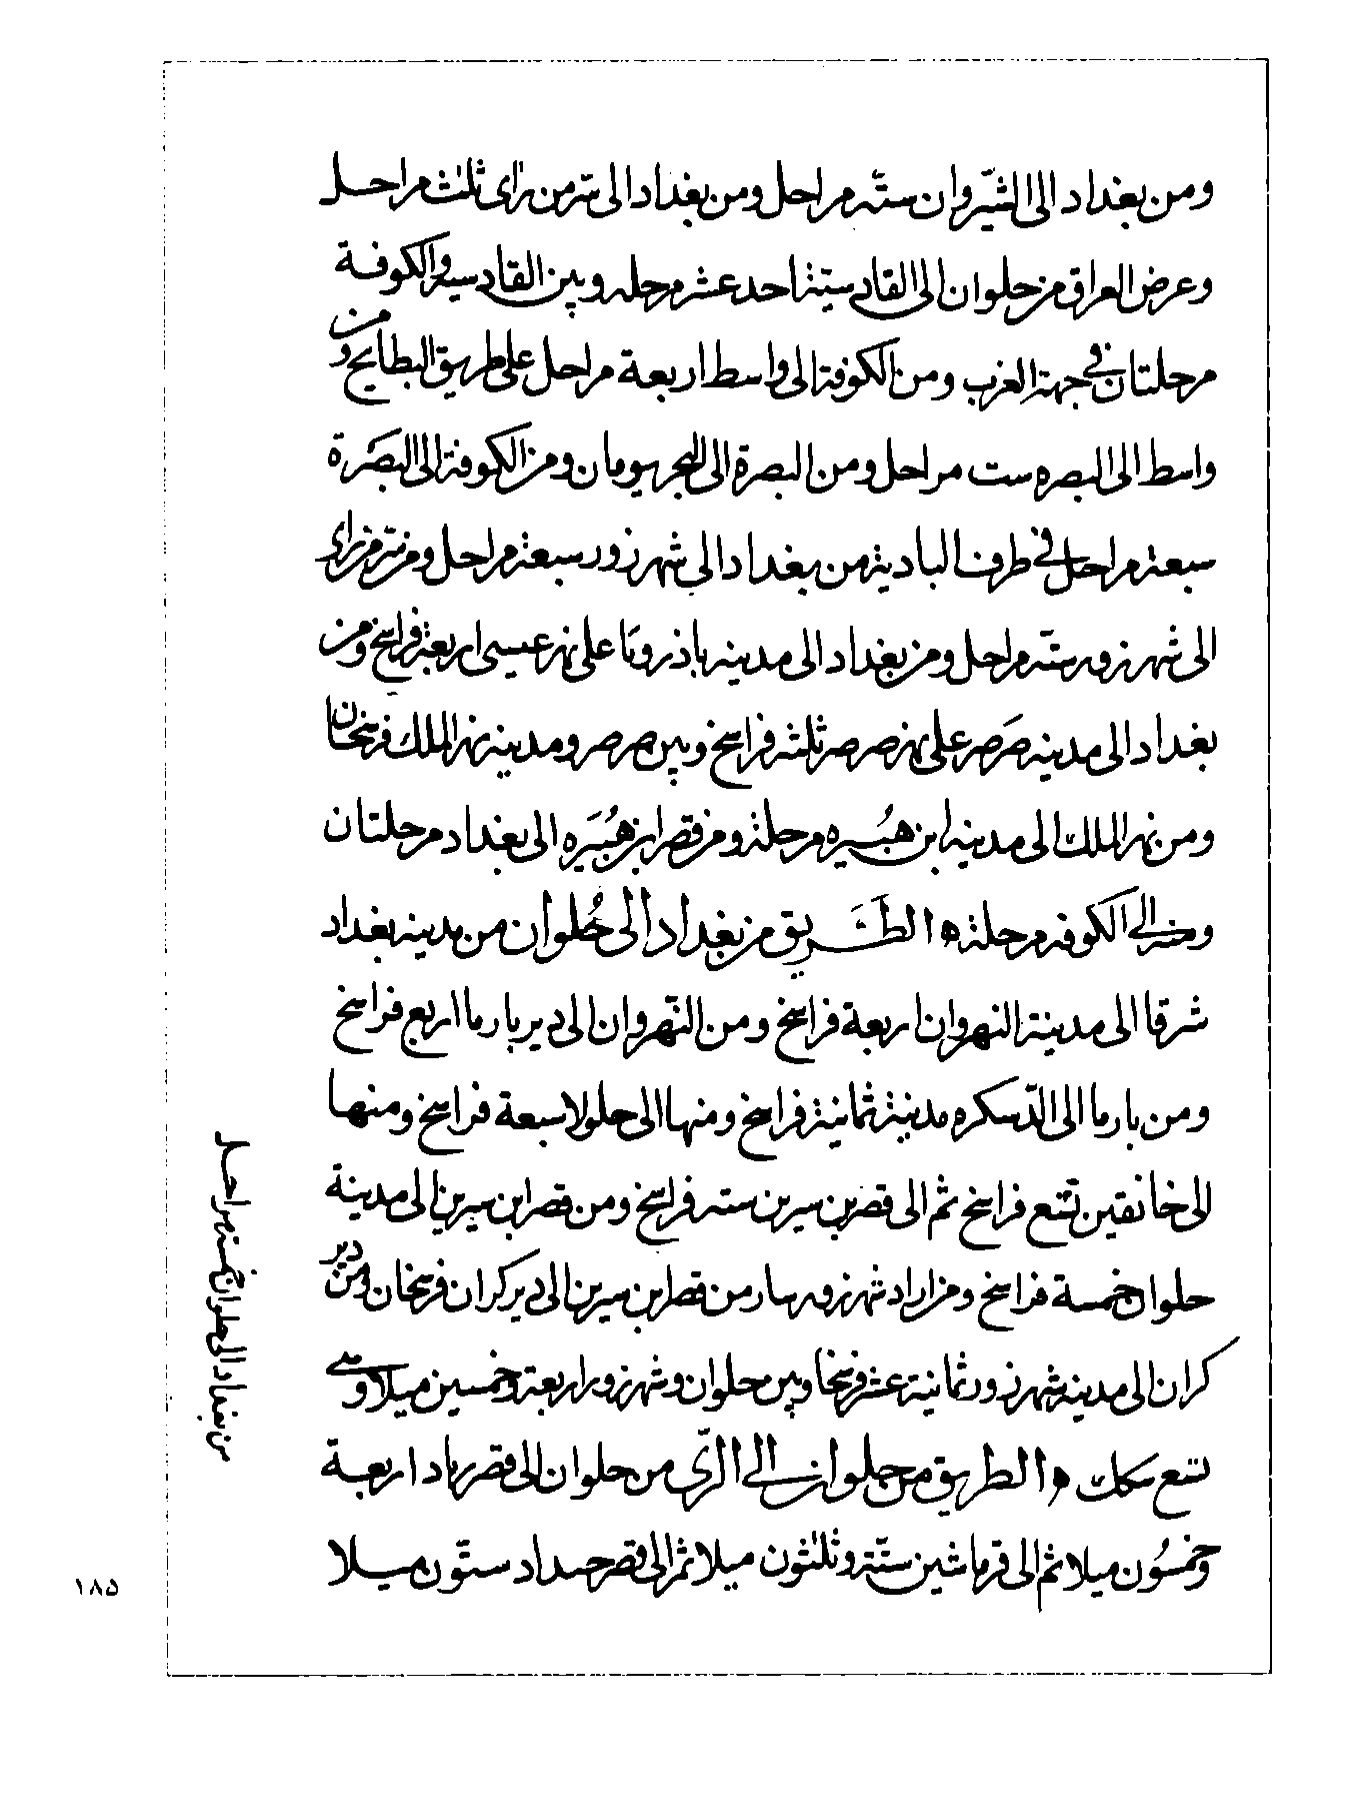 ومن بغداد الى الشيروان ستّه مراحل ومن بغداد الى سرّ من رأى ثلث مراحل
وعرض العراق من حلوان الى القادسية احد عشر مرحله وبين القادسيه والكوفة
مرحلتان فى جهة الغرب ومن الكوفة الى واسط اربعة مراحل على طريق البطايح ومن
واسط الى البصره ست مراحل ومن البصرة الى البحر يومان ومن الكوفة الى البصَرة
سبعة مراحل فى طرف البادية من بغداد الى شهرزور سبعة مراحل ومن سرّ من رأى
الى شهرزور ستّه مراحل ومن بغداد الى مدينه باذرويَا على نهر عيسى اربعة فراسخ ومن
بغداد الى مدينه صَرصر على نهر صرصر ثلثه فراسخ وبين صرصر ومدينه نهر الملك فرسخان
ومن نهر الملك الى مدينه ابن هبُيره مرحلة ومن قصر ابن هبُيَره الى بغداد مرحلتان
ومنه الى الكوفه مرحلة ه الطَّريق من بغداد الى حُلوان من مدينه بغداد
شرقا الى مدينة النهروان اربعة فراسخ ومن النّهروان الى دير بارما اربع فراسخ
ومن بارما الى الدّسكره مدينة ثمانية فراسخ ومنها الى جلولا سبعة فراسخ ومنها
الى خانقين تسع فراسخ ثم الى قصر بن سيرين سته فراسخ ومن قصر ابن سيرين الى مدينة
حلوان خمسة فراسخ ومن اراد شهرزور سار من قصر بن سيرين الى دير كران فرسخان ومن دير
كران الى مدينة شهرزور ثمانية عشر فرسخا وبين حلوان وشهرزور اربعة وخمسين ميلا وهى
تسع سكك ه الطريق من حلوان الى الرّى من حلوان الى قصر رباد اربعة
وخمسُون ميلا ثم الى قرماشين ستّة وثلثون ميلا ثم الى قصر حداد ستّون ميلا
من بغداد الى حلوان خمسة مراحل
١٨٥